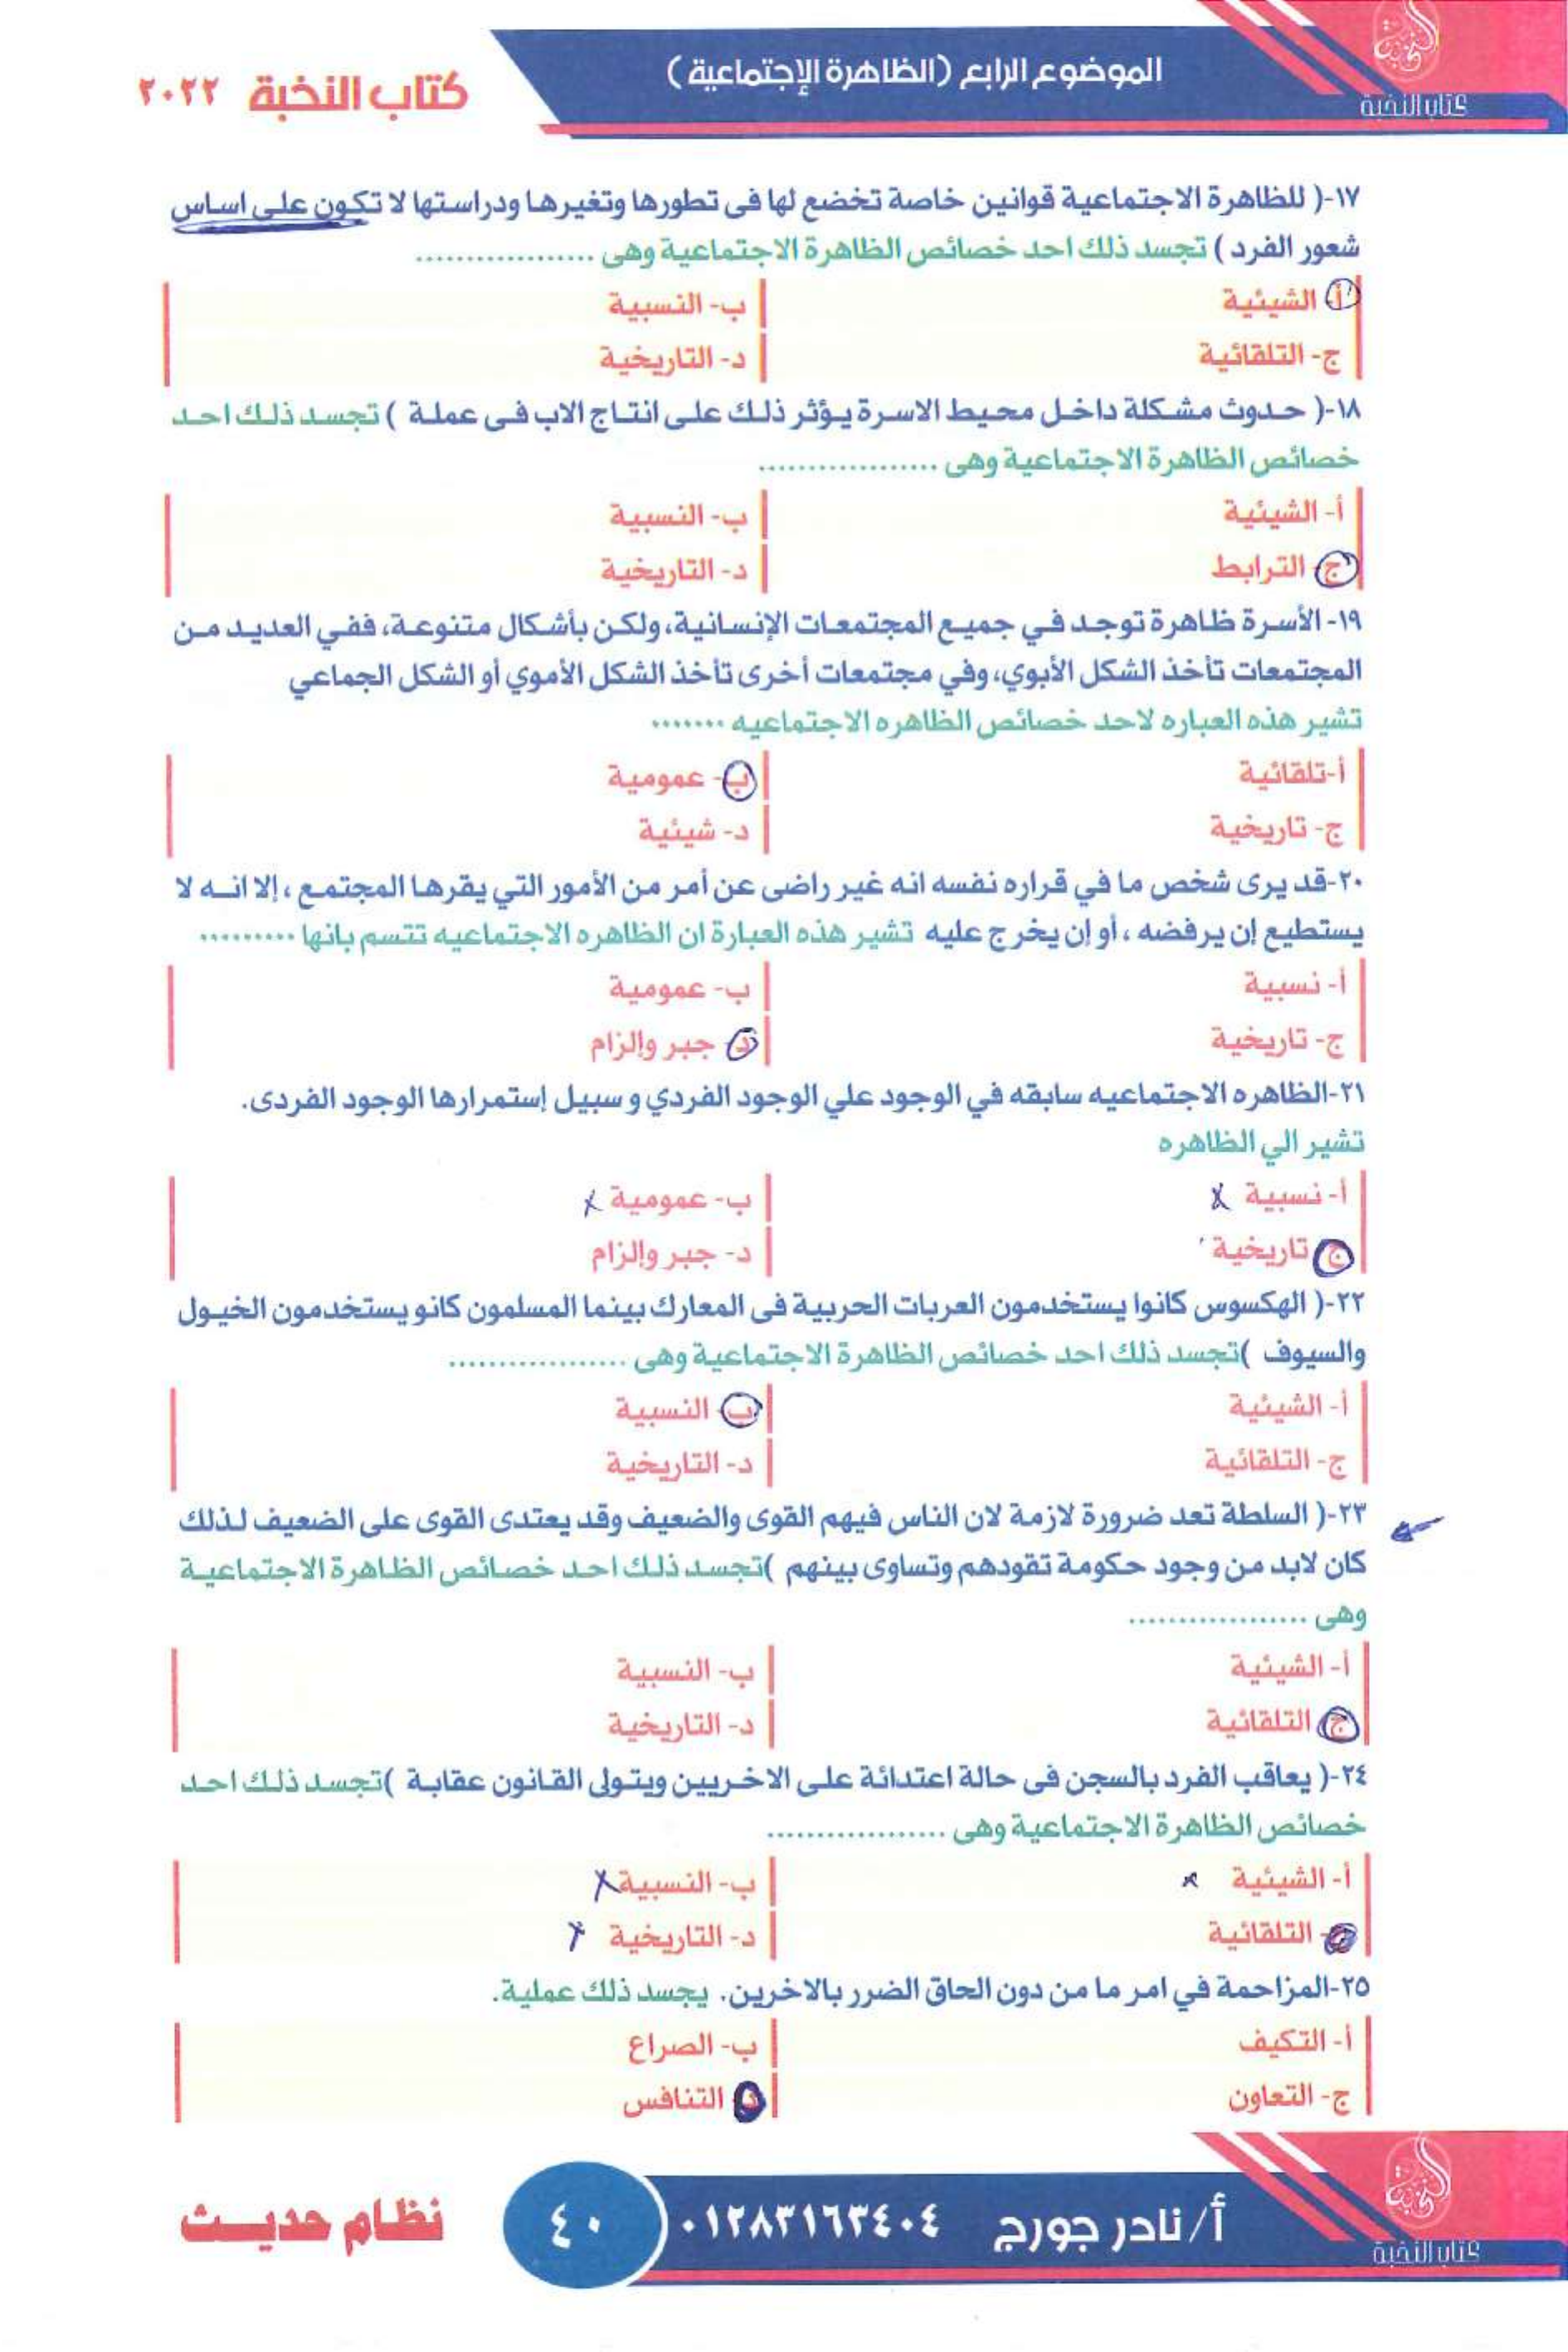 كتاب النخبة
الموضوع الرابع (الظاهرة الإجتماعية)
كتاب النخبة ٢٠٢٢
١٧-( للظاهرة الاجتماعية قوانين خاصة تخضع لها فى تطورها وتغيرها ودراستها لا تكون على اساس
شعور الفرد ) تجسد ذلك احد خصائص الظاهرة الاجتماعية وهى ..................
أ- الشيئية
ب- النسبية
ج- التلقائية
د- التاريخية
١٨-( حدوث مشكلة داخل محيط الاسرة يؤثر ذلك على انتاج الاب فى عملة ) تجسد ذلك احد
خصائص الظاهرة الاجتماعية وهى ..................
أ- الشيئية
ب- النسبية
ج- الترابط
د- التاريخية
١٩- الأسرة ظاهرة توجد في جميع المجتمعات الإنسانية، ولكن بأشكال متنوعة، ففي العديد من
المجتمعات تأخذ الشكل الأبوي، وفي مجتمعات أخرى تأخذ الشكل الأموي أو الشكل الجماعي
تشير هذه العباره لاحد خصائص الظاهره الاجتماعيه .......
أ-تلقائية
ب- عمومية
ج- تاريخية
د- شيئية
٢٠-قد يرى شخص ما في قراره نفسه انه غير راضى عن أمر من الأمور التي يقرها المجتمع ، إلا انه لا
يستطيع إن يرفضه ، أو إن يخرج عليه تشير هذه العبارة ان الظاهره الاجتماعيه تتسم بانها .........
أ- نسبية
ب- عمومية
ج- تاريخية
د- جبر وإلزام
٢١-الظاهره الاجتماعيه سابقه في الوجود علي الوجود الفردي و سبيل إستمرارها الوجود الفردى.
تشير الي الظاهره
أ- نسبية
ب- عمومية
ج- تاريخية
د- جبر وإلزام
٢٢-( الهكسوس كانوا يستخدمون العربات الحربية فى المعارك بينما المسلمون كانو يستخدمون الخيول
والسيوف )تجسد ذلك احد خصائص الظاهرة الاجتماعية وهى ..................
أ- الشيئية
ب- النسبية
ج- التلقائية
د- التاريخية
٢٣-( السلطة تعد ضرورة لازمة لان الناس فيهم القوى والضعيف وقد يعتدى القوى على الضعيف لذلك
كان لابد من وجود حكومة تقودهم وتساوى بينهم )تجسد ذلك احد خصائص الظاهرة الاجتماعية
وهى ..................
أ- الشيئية
ب- النسبية
ج- التلقائية
د- التاريخية
٢٤-( يعاقب الفرد بالسجن فى حالة اعتدائة على الاخريين ويتولى القانون عقابة )تجسد ذلك احد
خصائص الظاهرة الاجتماعية وهى ..................
أ- الشيئية
ب- النسبية
ج- التلقائية
د- التاريخية
٢٥-المزاحمة في امر ما من دون الحاق الضرر بالاخرين. يجسد ذلك عملية.
أ- التكيف
ب- الصراع
ج- التعاون
د- التنافس
كتاب النخبة
أ/ نادر جورج ٠١٢٨٣١٦٣٤٠٤
٤٠
نظام حديث